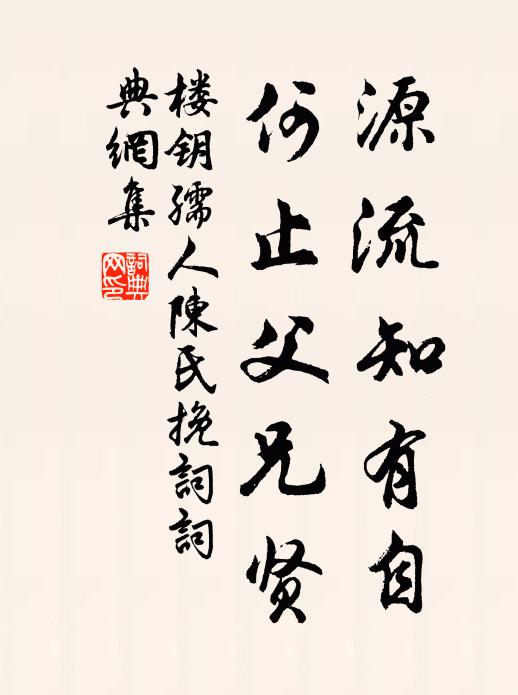 源流知有自
何止父兄贤
楼钥孺人陳氏挽詞詞
典網集
詞典
网印